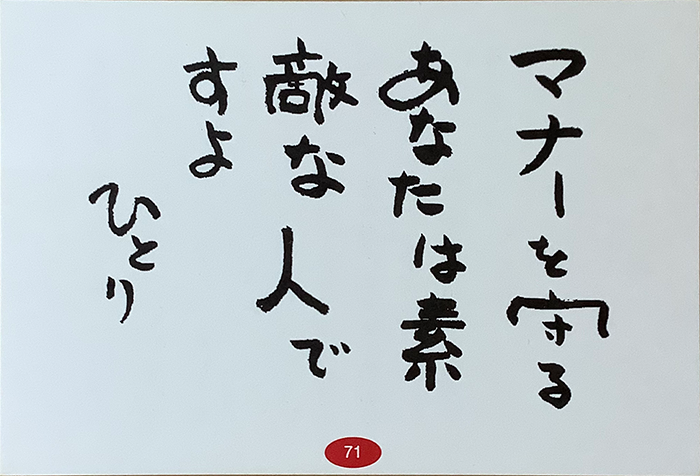 マナーを守る
あなたは素
敵な人で
すよ
ひとり
71